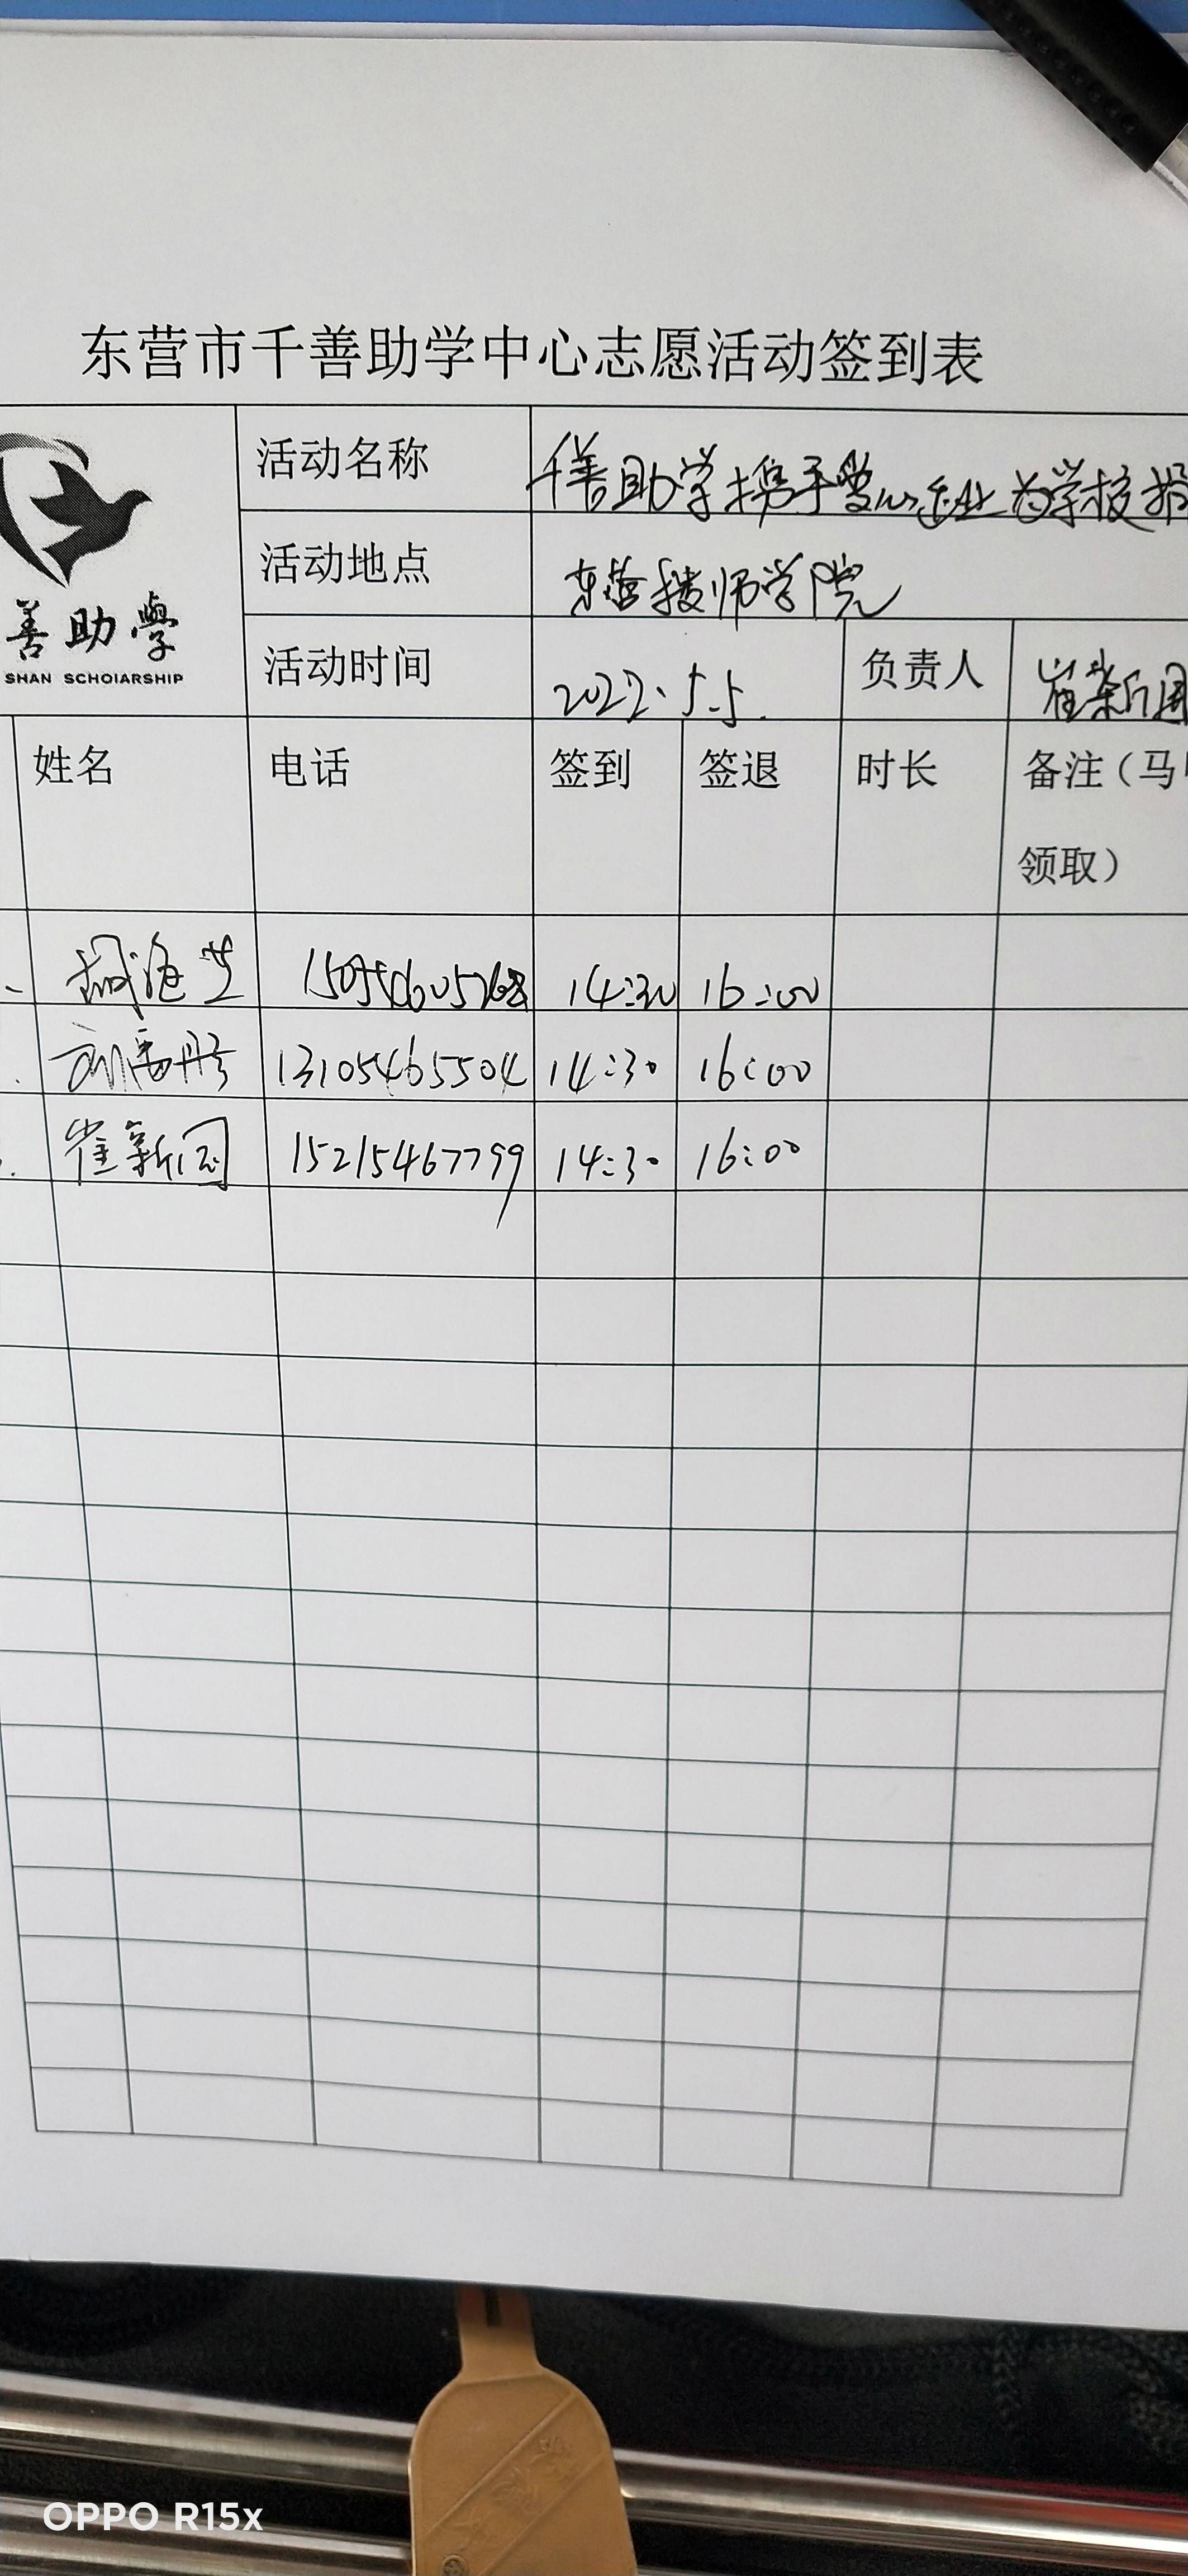 东营市千善助学中心志愿活动签到表
善助學
SHAN SCHOIARSHIP
活动名称 千善助学携手爱心企业为学校捐
活动地点 东营技师学院
活动时间 2022.5.5. 负责人 崔新国
姓名 电话 签到 签退 时长 备注（马
领取）
海芝 14:30 16:00
13105465504 14:30 16:00
崔新国 15215467799 14:30 16:00
OPPO R15x